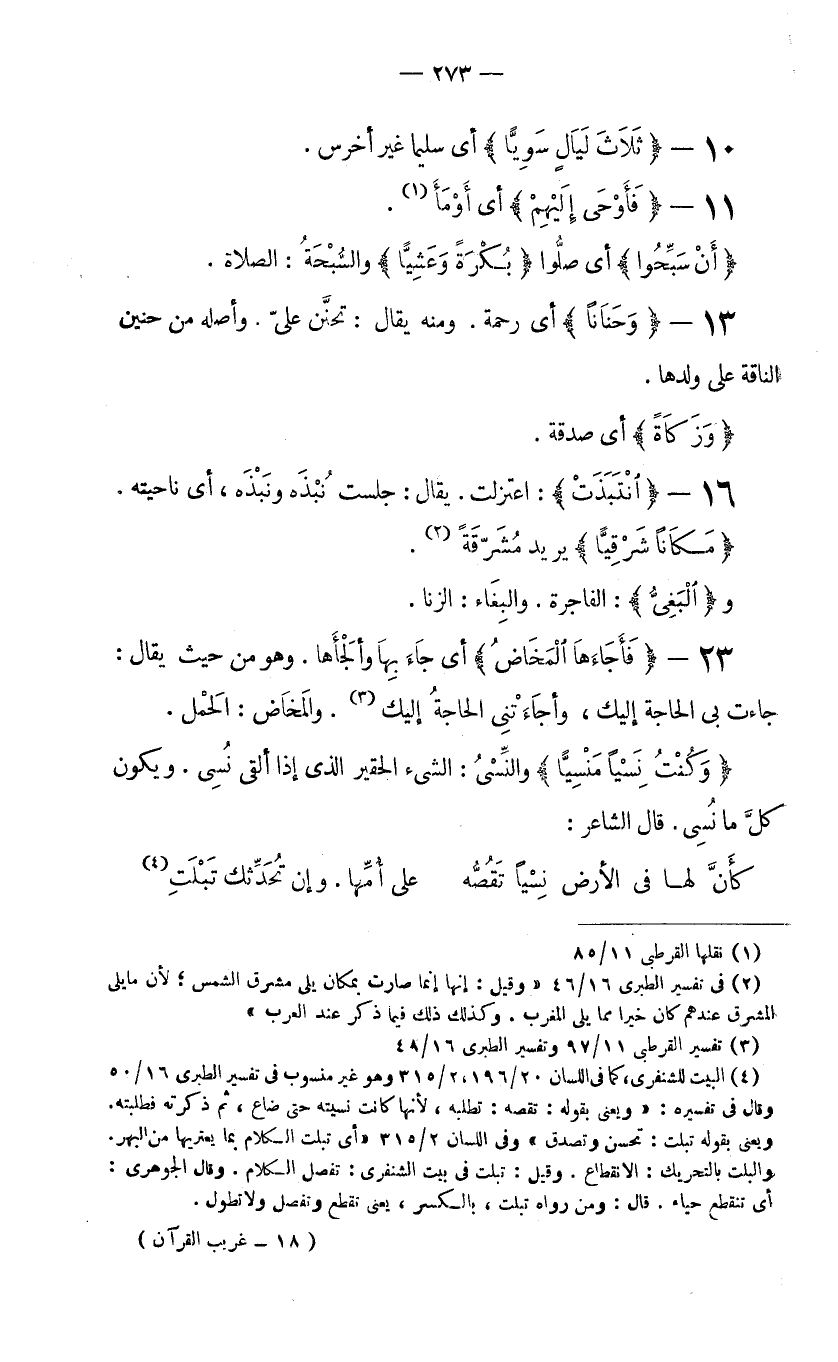 — ٢٧٣ —
١٠ — ﴿ ثَلَاثَ لَيَالٍ سَوِيًّا ﴾ أى سليما غير أخرس .
١١ — ﴿ فَأَوْحَى إِلَيْهِمْ ﴾ أى أَوْمَأَ (١) .
﴿ أَنْ سَبِّحُوا ﴾ أى صلُّوا ﴿ بُكْرَةً وَعَشِيًّا ﴾ والسُّبْحَةُ : الصلاة .
١٣ — ﴿ وَحَنَانًا ﴾ أى رحمة . ومنه يقال : تحنَّن علىّ . وأصله من حنين
الناقة على ولدها .
﴿ وَزَكَاةً ﴾ أى صدقة .
١٦ — ﴿ ٱنْتَبَذَتْ ﴾ : اعتزلت . يقال : جلست نُبْذَه ونَبْذَه ، أى ناحيته .
﴿ مَكَانًا شَرْقِيًّا ﴾ يريد مُشَرِّقَةً (٢) .
و ﴿ ٱلْبَغِىُّ ﴾ : الفاجرة . والبِغَاء : الزنا .
٢٣ — ﴿ فَأَجَاءَهَا ٱلْمَخَاضُ ﴾ أى جَاءَ بِهَا وأَلْجَأَها . وهو من حيث يقال :
جاءت بى الحاجة إليك ، وأجاءَتْنِى الحاجةُ إليك (٣) . والمَخاض : الحَمْل .
﴿ وَكُنْتُ نِسْيًا مَنْسِيًّا ﴾ والنِّسْىُ : الشىء الحقير الذى إذا ألقى نُسِى . ويكون
كلَّ ما نُسِى . قال الشاعر :
كأَنَّ لها فى الأرض نِسْيًا تَقُصُّه على أُمِّها . وإن تُحَدِّثك تَبْلَتِ (٤)
(١) نقلها القرطبى ٨٥/١١
(٢) فى تفسير الطبرى ٤٦/١٦ « وقيل : إنها إنما صارت بمكان يلى مشرق الشمس ؛ لأن مايلى
المشرق عندهم كان خيرا مما يلى المغرب . وكذلك ذلك فيما ذكر عند العرب »
(٣) تفسير القرطبى ٩٧/١١ وتفسير الطبرى ٤٨/١٦
(٤) البيت للشنفرى، كما فى اللسان ١٩٦/٢٠، ٣١٥/٢ وهو غير منسوب فى تفسير الطبرى ٥٠/١٦
وقال فى تفسيره : « ويعنى بقوله : تقصه : تطلبه ، لأنها كانت نسيته حتى ضاع ، ثم ذكرته فطلبته.
ويعنى بقوله تبلت : تحسن وتصدق » وفى اللسان ٣١٥/٢ «أى تبلت الكلام بما يعتريها من البهر.
والبلت بالتحريك : الانقطاع . وقيل : تبلت فى بيت الشنفرى : تفصل الكلام . وقال الجوهرى :
أى تنقطع حياء . قال : ومن رواه تبلت ، بالكسر ، يعنى تقطع وتفصل ولاتطول .
( ١٨ – غريب القرآن )